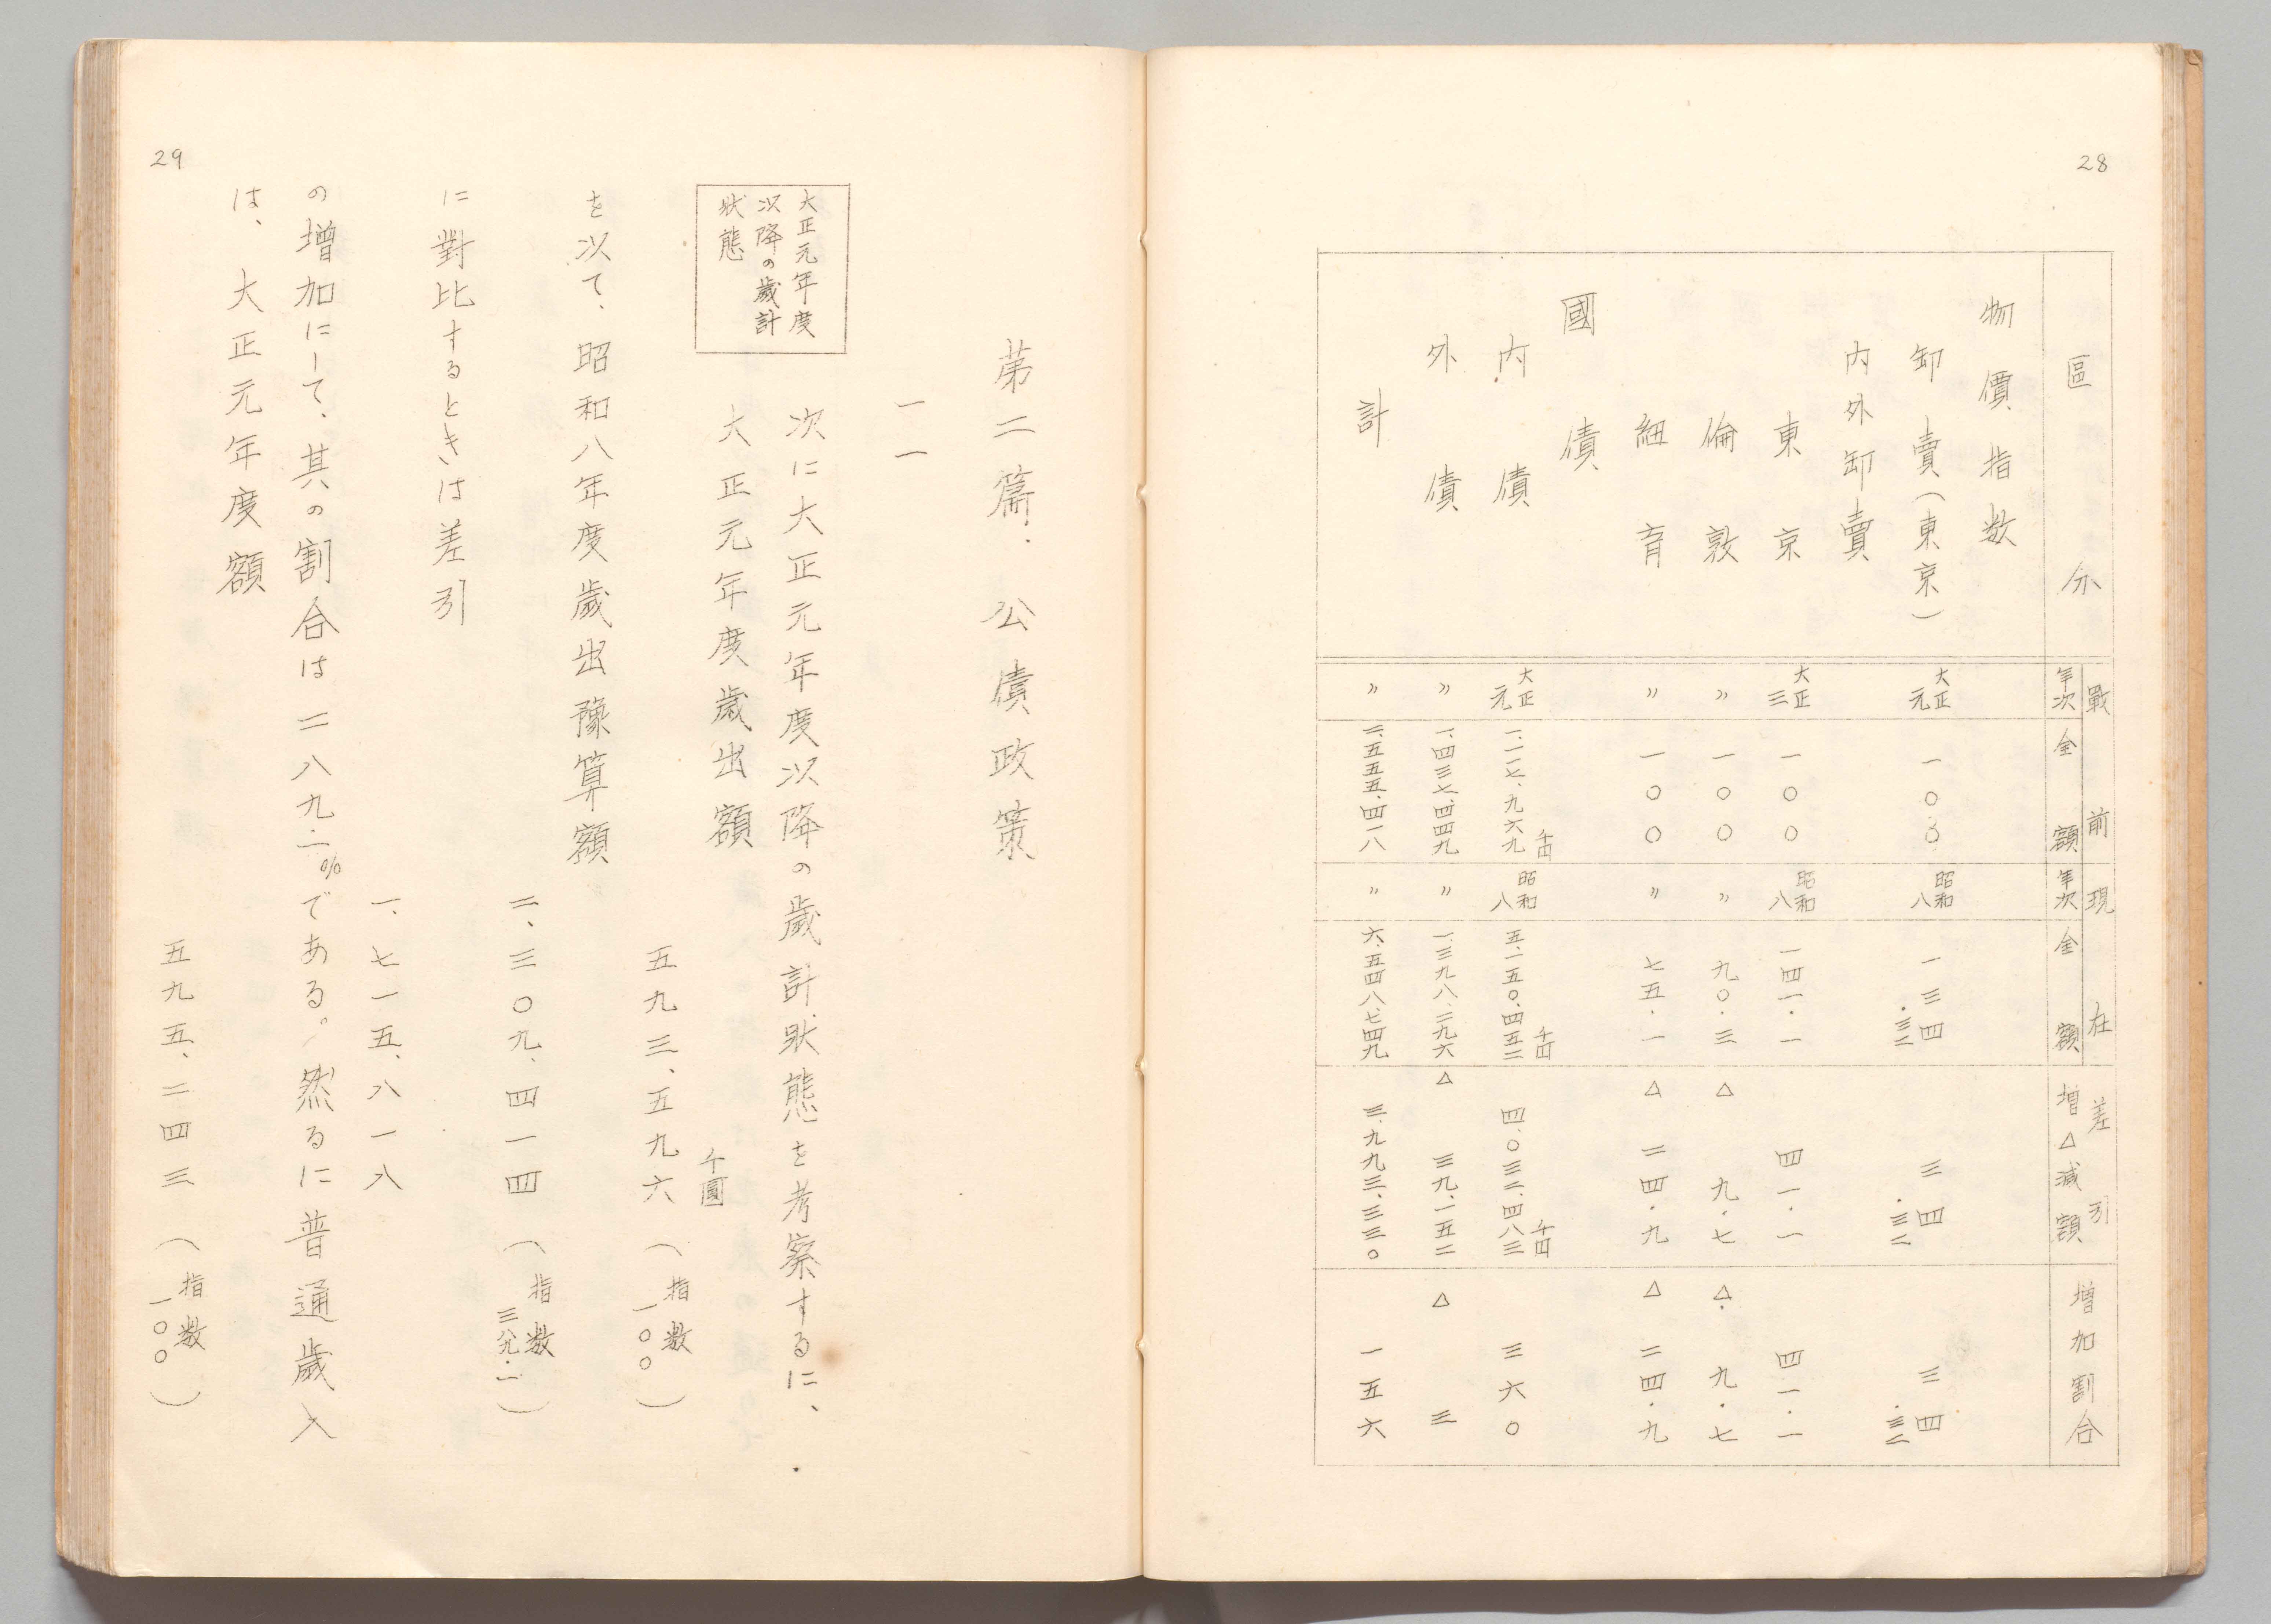 28
區分 戰前 年次 金額 現在 年次 金額 差引 増△減額 増加割合
物價指数
卸賣(東京) 大正元 一〇〇 昭和八 一三四・三二 三四・三二 三四・三二
内外卸賣
東京 大正三 一〇〇 昭和八 一四一・一 四一・一 四一・一
倫敦 〃 一〇〇 〃 九〇・三 △九・七 △九・七
紐育 〃 一〇〇 〃 七五・一 △二四・九 △二四・九
國債
内債 大正元 一、一一七、九六九千円 昭和八 五、一五〇、四五二千円 四、〇三二、四八三千円 三六〇
外債 〃 一、四三七、四四九 〃 一、三九八、二九六 △三九、一五二 △三
計 〃 二、五五五、四一八 〃 六、五四八、七四九 三、九九三、三三〇 一五六
29
第二篇、公債政策
一一
大正元年度
以降の歳計
状態
次に大正元年度以降の歳計状態を考察するに、
大正元年度歳出額
五九三、五九六千圓(指数一〇〇)
を以て、昭和八年度歳出豫算額
二、三〇九、四一四(指数三八九・一)
に對比するときは差引
一、七一五、八一八
の増加にして、其の割合は二八九・一%である。然るに普通歳入
は、大正元年度額
五九五、二四三(指数一〇〇)